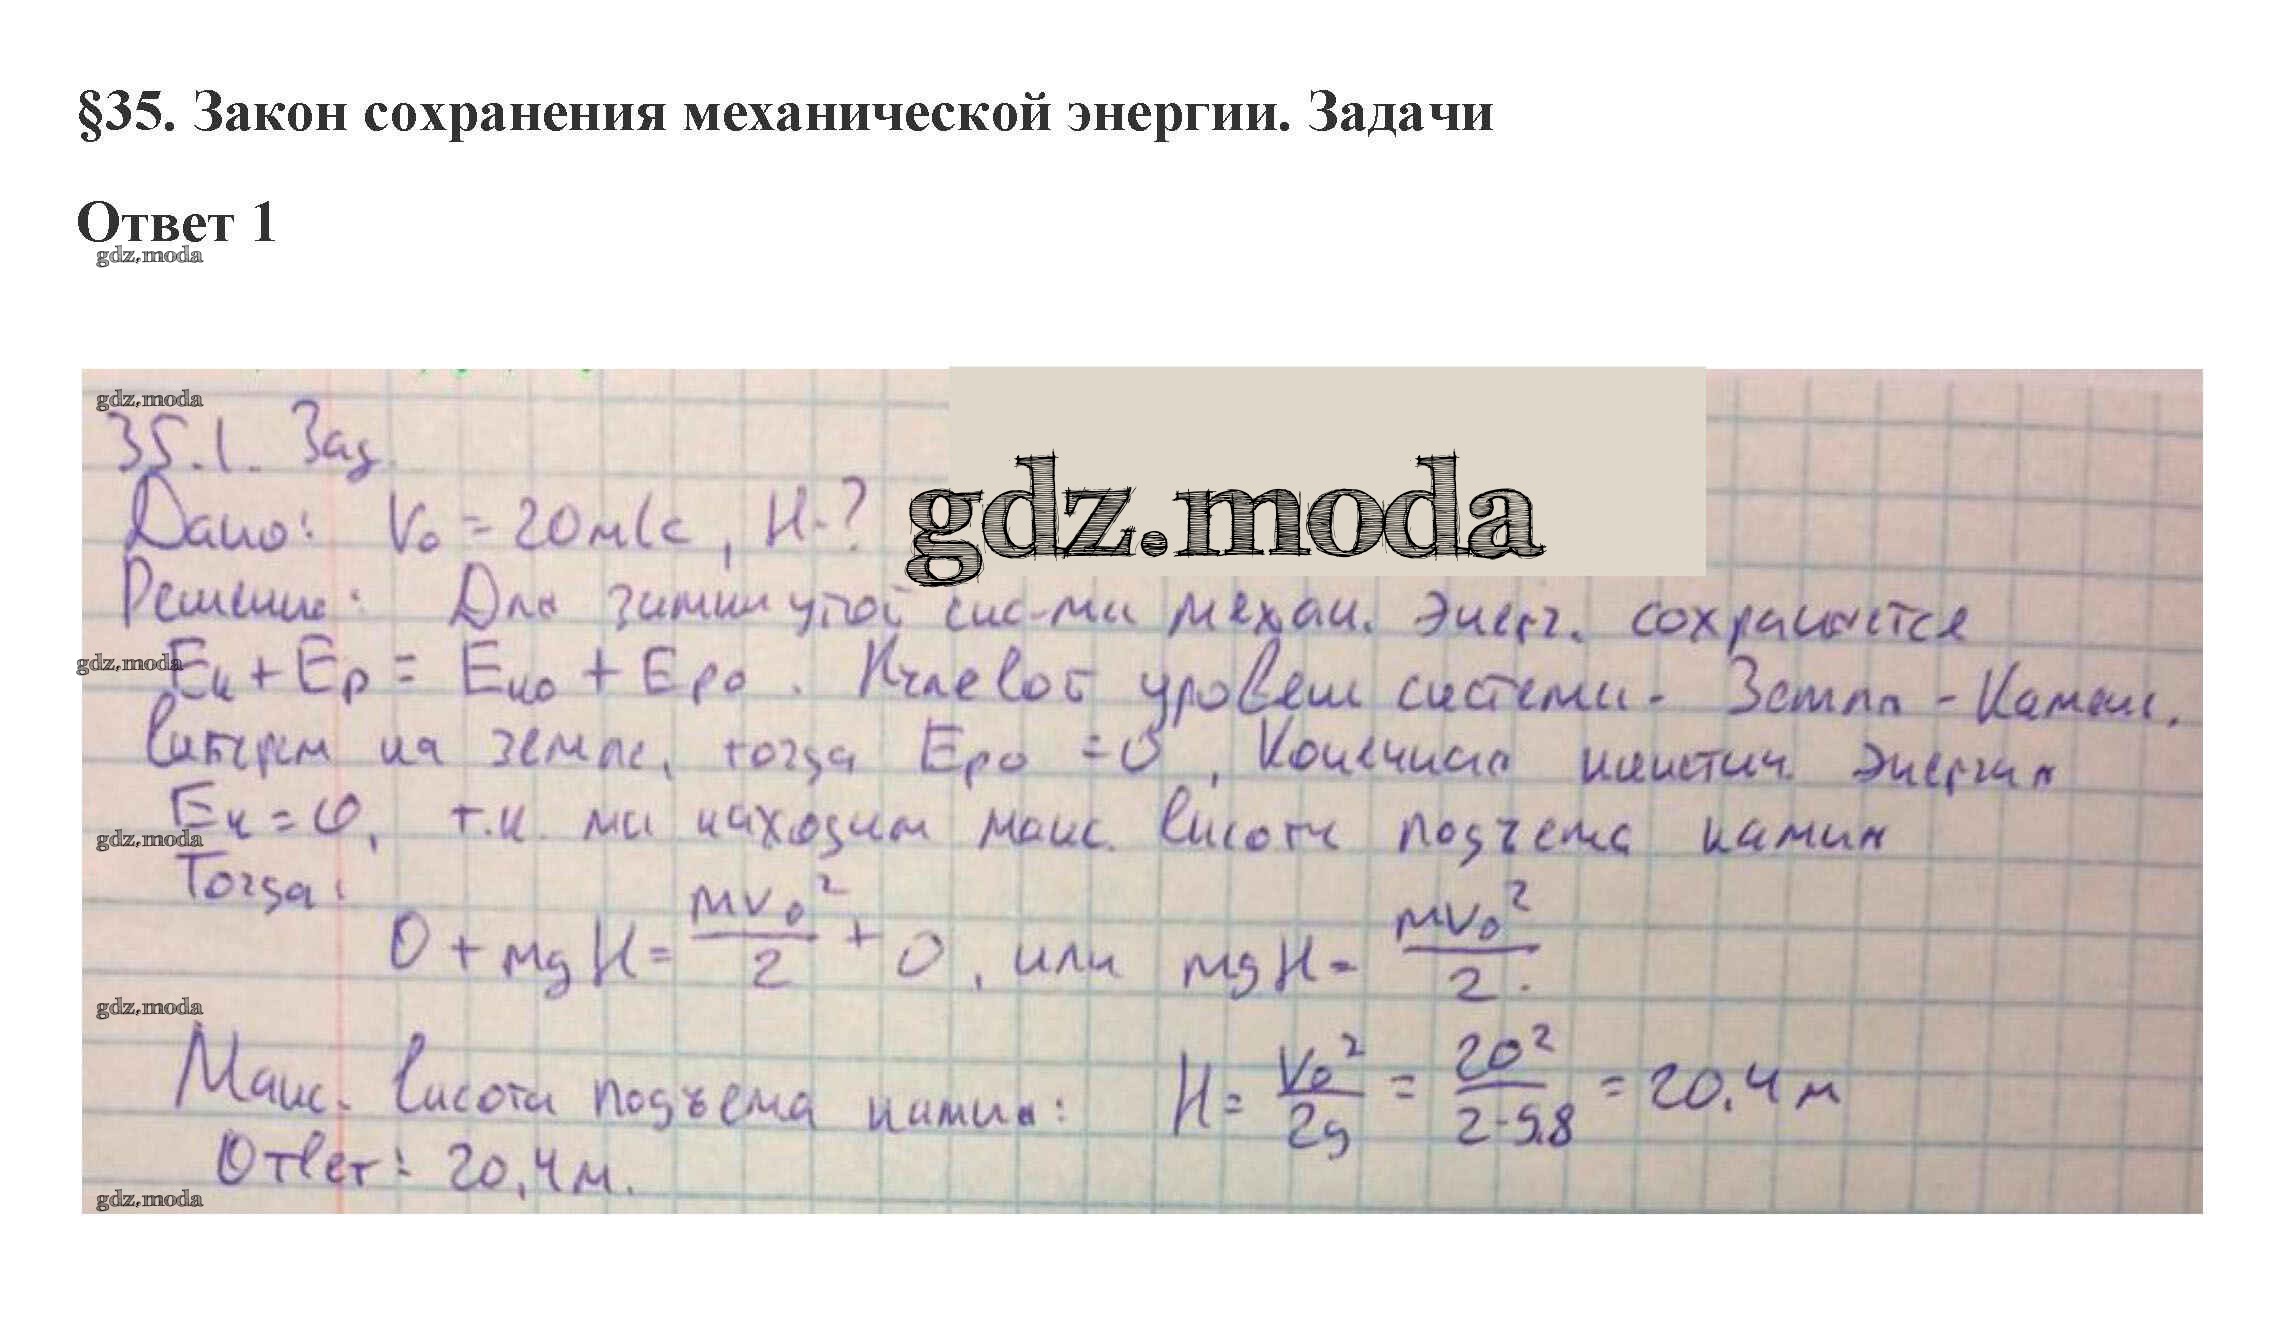 §35. Закон сохранения механической энергии. Задачи
Ответ 1
gdz.moda
gdz.moda
35.1. Зад.
gdz.moda
Дано: V₀ = 20 м/с, H-?
Решение: Для замкнутой сис-мы механ. энерг. сохраняется
gdz.moda
Eк + Ep = Eк₀ + Ep₀. Нулевой уровень системы - Земля - Камень.
Выберем на земле, тогда Ep₀ = 0, Конечная кинетич. энергия
gdz.moda
Eк = 0, т.к. мы находим макс. высоту подъема камня
Тогда:
0 + mgH = mv₀²/2 + 0, или mgH = mv₀²/2.
gdz.moda
Макс. высота подъема камня: H = V₀²/2g = 20²/2·9,8 = 20,4 м
Ответ: 20,4 м.
gdz.moda